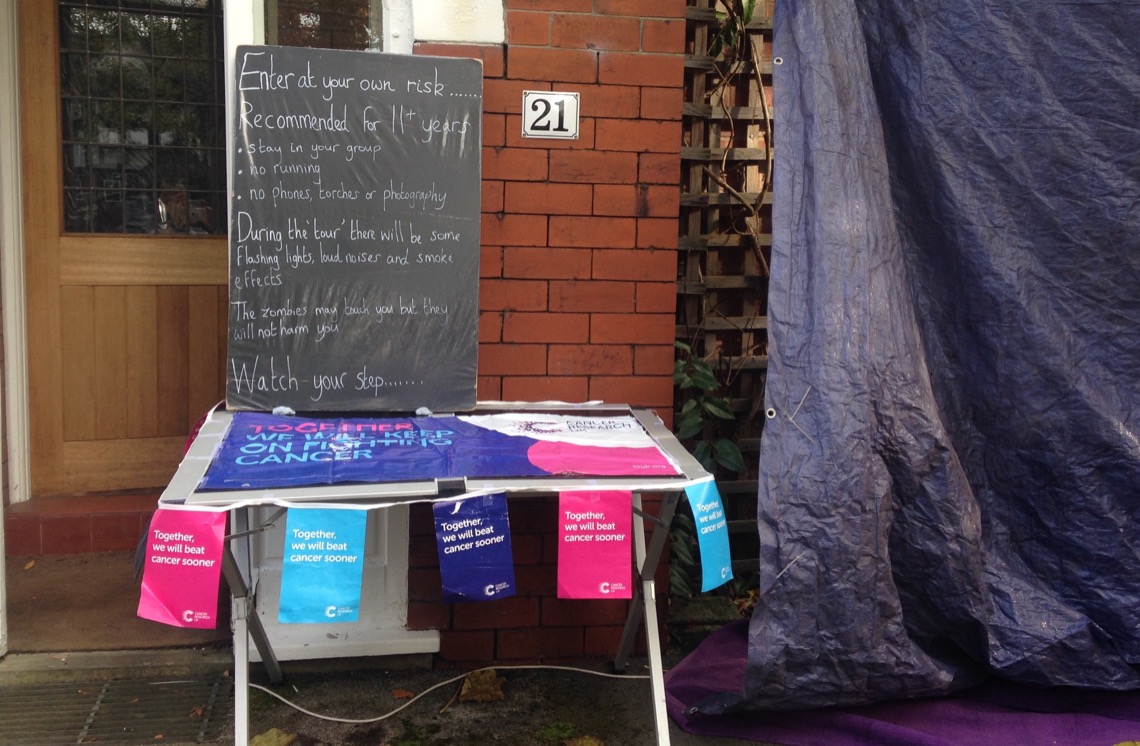 Enter at your own risk......
Recommended for 11+ years
• stay in your group
• no running
• no phones, torches or photography
During the 'tour' there will be some
flashing lights, loud noises and smoke
effects.
The zombies may touch you but they
will not harm you
Watch your step.......
21
TOGETHER
WE WILL KEEP
ON FIGHTING
CANCER
CANCER
RESEARCH
UK
cruk.org
Together,
we will beat
cancer sooner
CANCER
RESEARCH
UK
Together,
we will beat
cancer sooner
CANCER
RESEARCH
UK
Together,
we will beat
cancer sooner
CANCER
RESEARCH
UK
Together,
we will beat
cancer sooner
CANCER
RESEARCH
UK
Together,
we will beat
cancer sooner